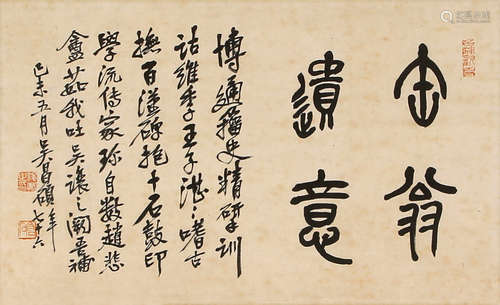 翁
遺意
博通籀史精研訓
詁維季王子湛々嗜古
撫百漢碑抱十石鼓印
學流傳家珍自數趙悲
盦茹我吐吳讓之闕吾補
己未五月吳昌碩年七十六